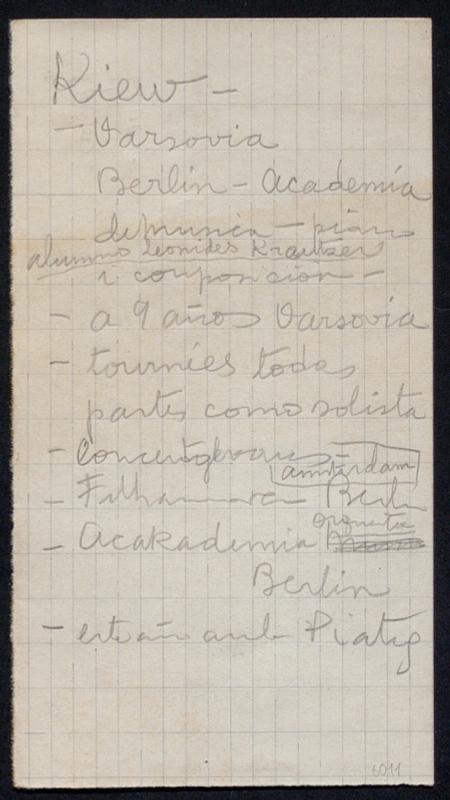 Kiew -
- Varsovia
Berlin - Academia
de musica - piano
alumno Leonides Kraitzer
i composición -
- a 9 años Varsovia
- tournées todas
partes como solista
- Concertgebouw -
amsterdam
- Filharmonica Berlin
- Acakademia orquesta
Berlin
- este año amb Piatig
6011